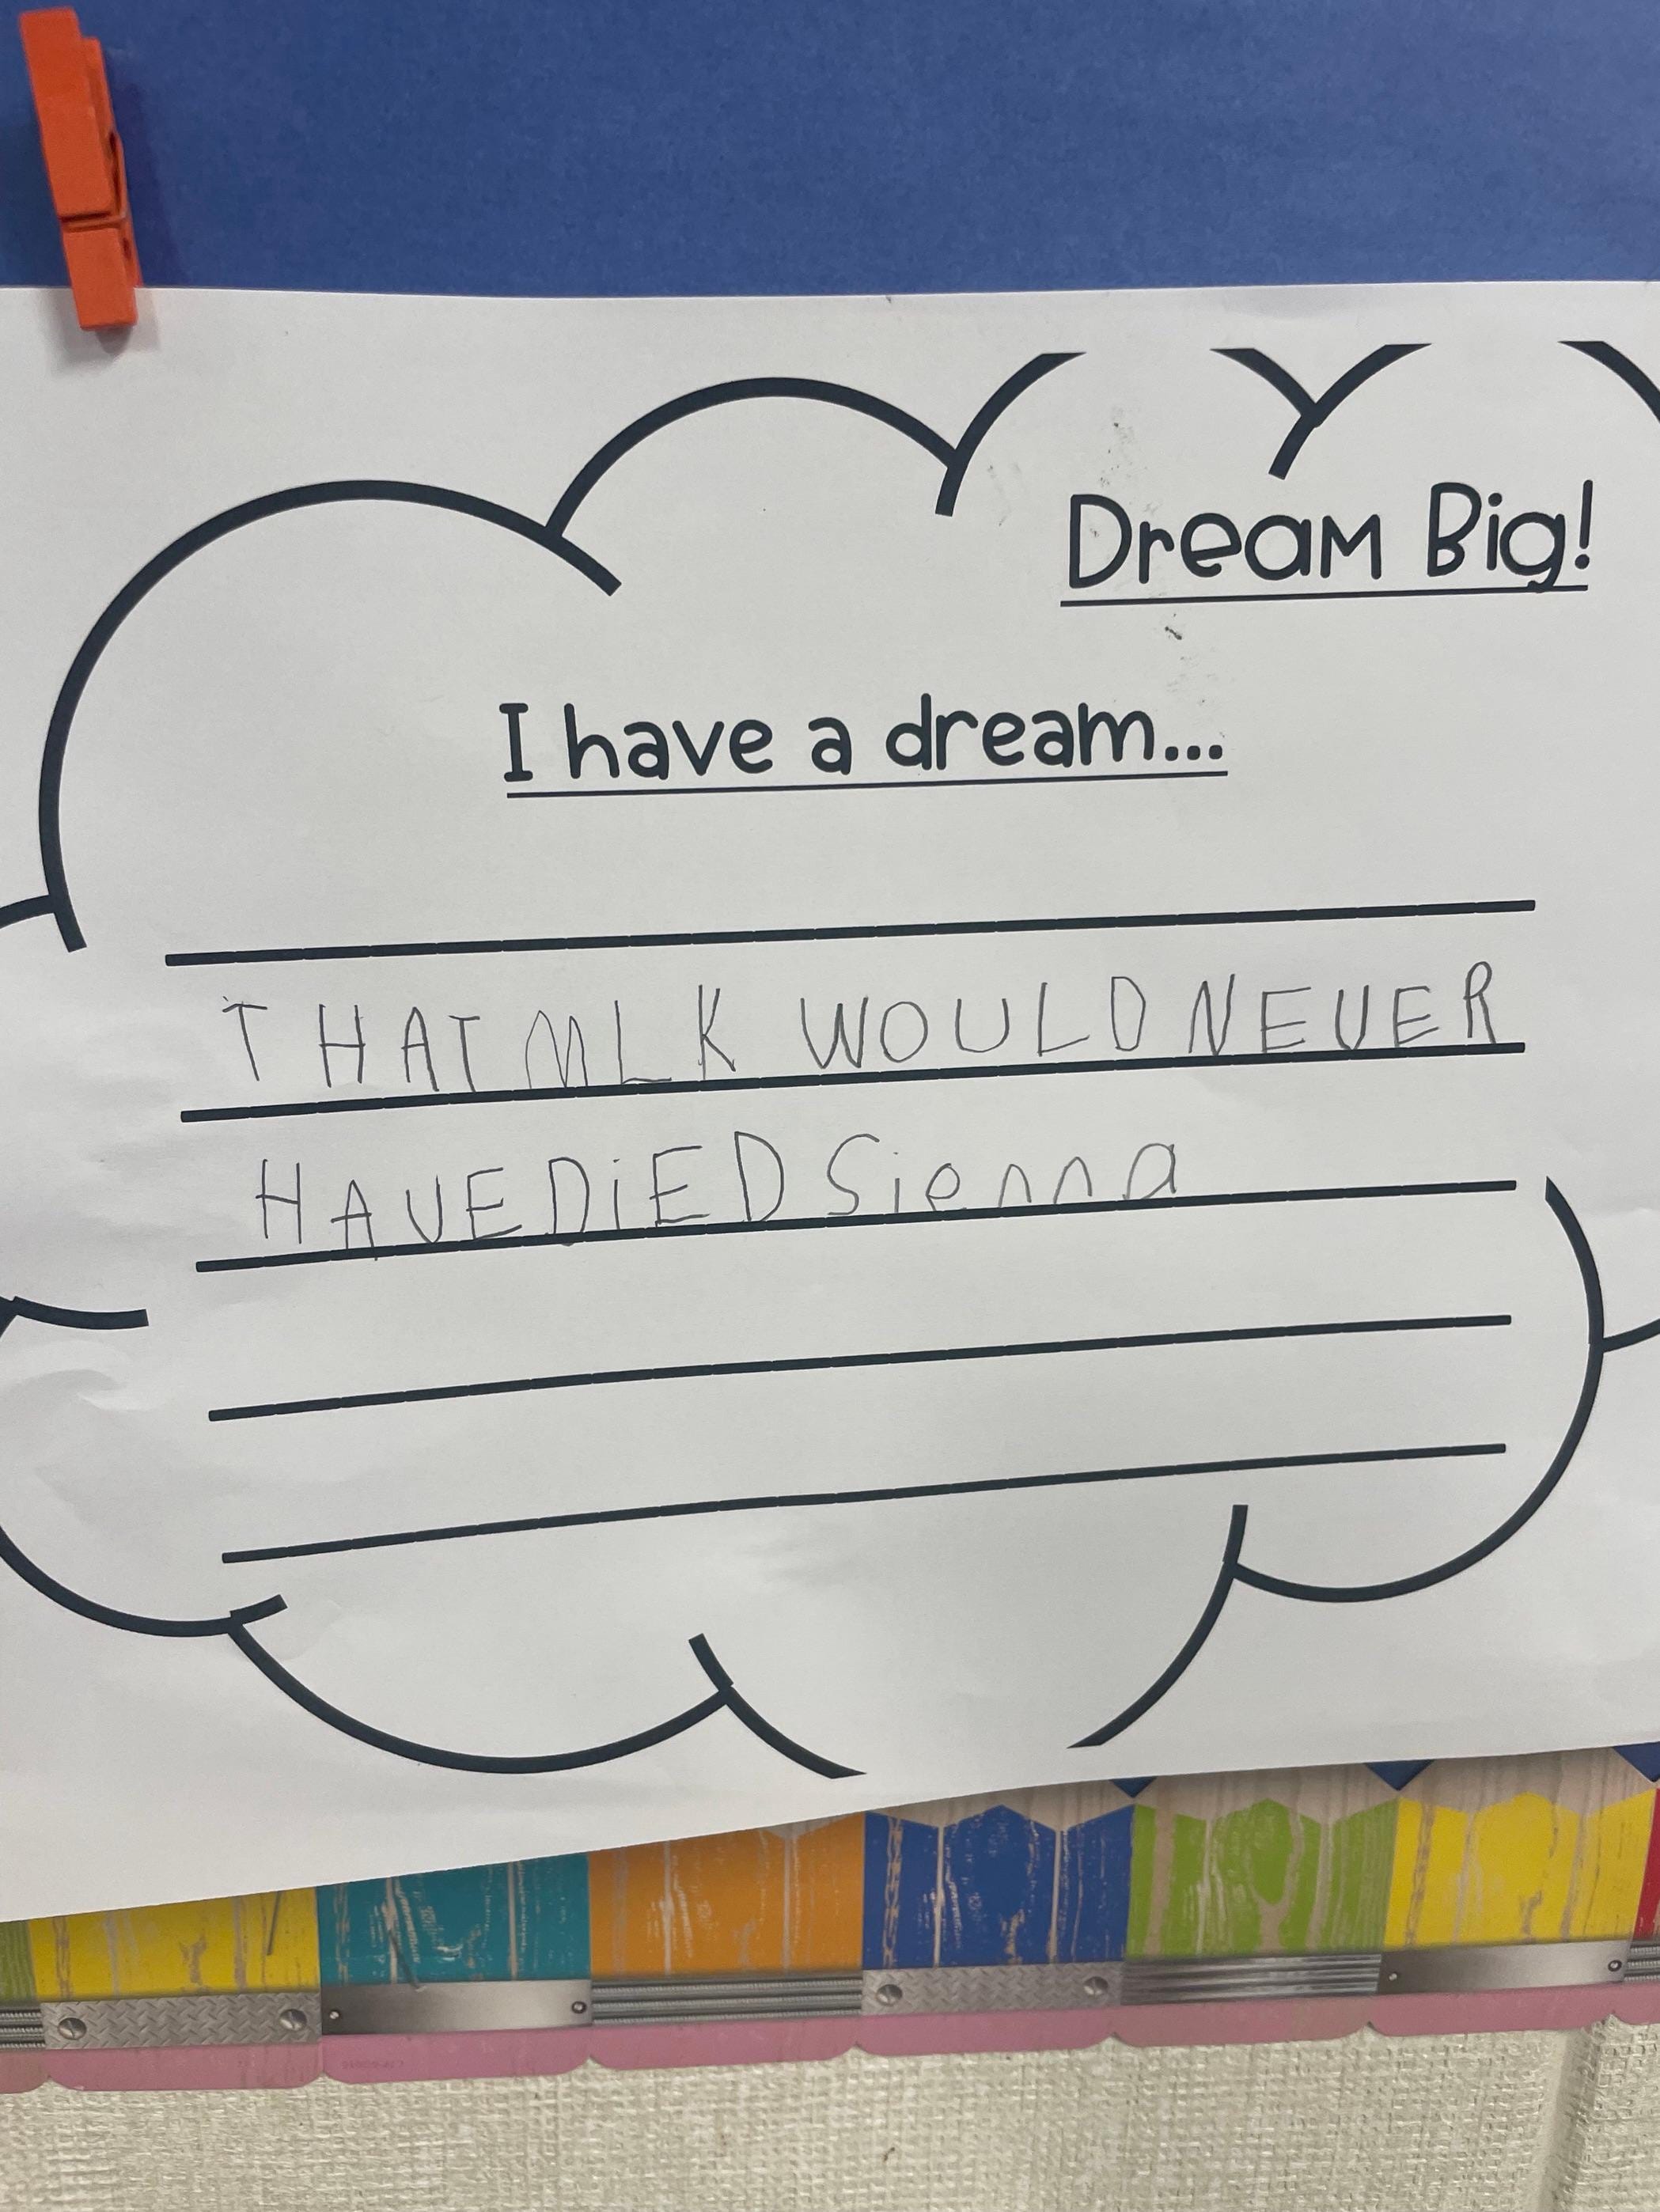 Dream Big!
I have a dream...
THAT MLK WOULD NEUER
HAUE DiED Sienna